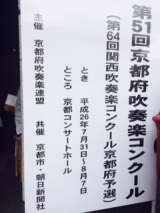 第51回京都府吹奏楽コンクール
(第64回関西吹奏楽コンクール京都府予選)
とき 平成26年7月31日~8月7日
ところ 京都コンサートホール
主催 京都府吹奏楽連盟
共催 京都市・朝日新聞社